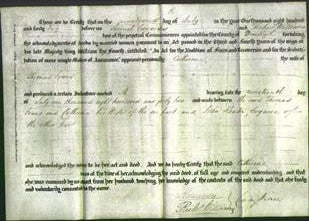 A
These are to Certify that on the nineteenth day of July in the Year One thousand eight hundred
and forty two before us
two of the perpetual Commissioners appointed for the County of Denbigh for taking
the acknowledgments of deeds by married women pursuant to an Act passed in the Third and Fourth years of the reign of
his late Majesty King William the Fourth intituled "An Act for the Abolition of Fines and Recoveries and for the Substitu-
tion of more simple Modes of Assurance" appeared personally Catherine the wife of
Thomas Evans
and produced a certain Indenture marked A bearing date the nineteenth day
of July one thousand eight hundred and forty two and made between the said Thomas
Evans and Catherine his Wife of the one part and John Esquire of
the other part
and acknowledged the same to be her act and deed. And we do hereby Certify that the said Catherine
was at the time of her acknowledging the said deed of full age and competent understanding and that
she was examined by us apart from her husband touching her knowledge of the contents of the said deed and that she freely
and voluntarily consented to the same.